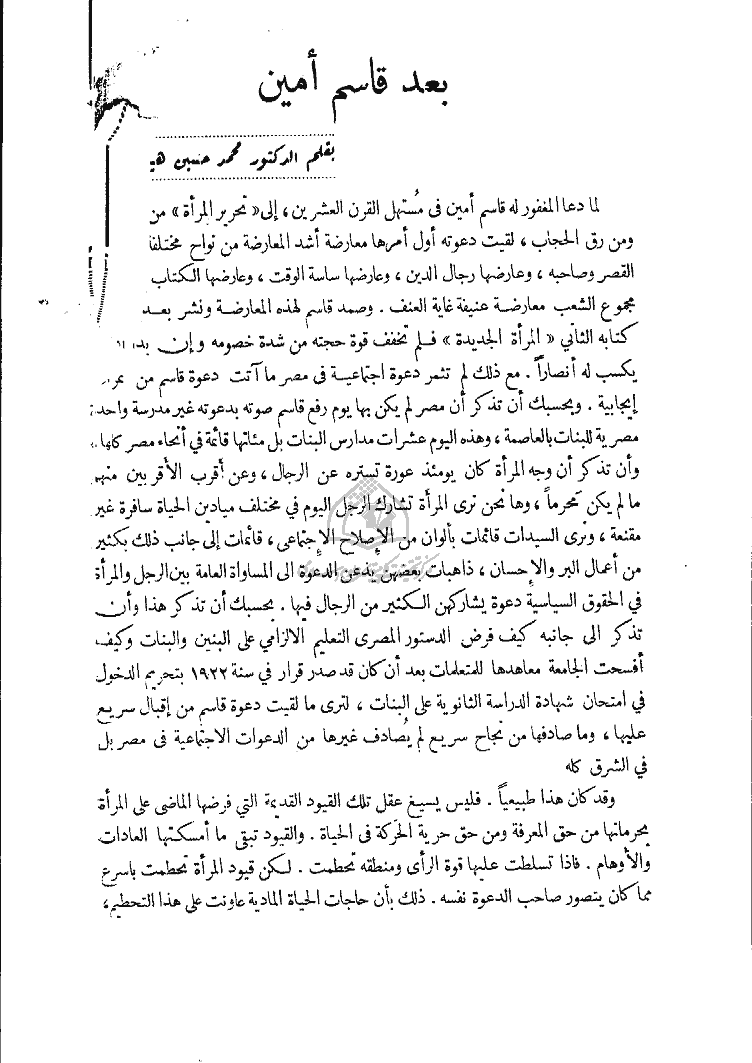 بعد قاسم أمين
بقلم الدكتور محمد حسين
لما دعا المغفور له قاسم أمين فى مُستهل القرن العشرين ، إلى « تحرير المرأة » من
ومن رق الحجاب ، لقيت دعوته أول أمرها معارضة أشد المعارضة من نواح مختلفا
القصر وصاحبه ، وعارضها رجال الدين ، وعارضها ساسة الوقت ، وعارضها الكتاب
مجموع الشعب معارضة عنيفة غاية العنف . وصمد قاسم لهذه المعارضة ونشر بعد
كتابه الثاني « المرأة الجديدة » فلم تخفف قوة حجته من شدة خصومه وإن
يكسب له أنصاراً . مع ذلك لم تثمر دعوة اجتماعية فى مصر ما آتت دعوة قاسم من
إيجابية . وبحسبك أن تذكر أن مصر لم يكن بها يوم رفع قاسم صوته بدعوته غير مدرسة واحدة
مصرية للبنات بالعاصمة ، وهذه اليوم عشرات مدارس البنات بل مئاتها قائمة في أنحاء مصر كلها .
وأن تذكر أن وجه المرأة كان يومئذ عورة تستره عن الرجال ، وعن أقرب الأقربين منهم
ما لم يكن مَحرماً ، وها نحن نرى المرأة تشارك الرجل اليوم في مختلف ميادين الحياة سافرة غير
مقنعة ، ونرى السيدات قائمات بألوان من الإصلاح الإجتماعى ، قائمات إلى جانب ذلك بكثير
من أعمال البر والإحسان ، ذاهبات بعضهن يذعن الدعوة الى المساواة العامة بين الرجل والمرأة
في الحقوق السياسية دعوة يشاركهن الكثير من الرجال فيها . بحسبك أن تذكر هذا وأن
تذكر الى جانبه كيف فرض الدستور المصرى التعليم الالزامي على البنين والبنات وكيف
أفسحت الجامعة معاهدها للمتعلمات بعد أن كان قد صدر قرار في سنة ١٩٢٢ بتحريم الدخول
في امتحان شهادة الدراسة الثانوية على البنات ، لترى ما لقيت دعوة قاسم من إقبال سريع
عليها ، وما صادفها من نجاح سريع لم يُصادف غيرها من الدعوات الاجتماعية فى مصر بل
في الشرق كله
وقد كان هذا طبيعياً . فليس يسيغ عقل تلك القيود القديمة التي فرضها الماضى على المرأة
بحرماتها من حق المعرفة ومن حق حرية الحَركة فى الحياة . والقيود تبقى ما أمسكتها العادات
والأوهام . فاذا تسلطت عليها قوة الرأى ومنطقه تحطمت . لكن قيود المرأة تحطمت باسرع
مما كان يتصور صاحب الدعوة نفسه . ذلك بأن حاجات الحياة المادية عاونت على هذا التحطيم ،